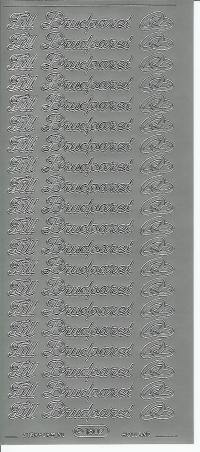 Till Brudparet
Till Brudparet
Till Brudparet
Till Brudparet
Till Brudparet
Till Brudparet
Till Brudparet
Till Brudparet
Till Brudparet
Till Brudparet
Till Brudparet
Till Brudparet
Till Brudparet
Till Brudparet
Till Brudparet
Till Brudparet
Till Brudparet
Till Brudparet
Till Brudparet
Till Brudparet
HOLLAND